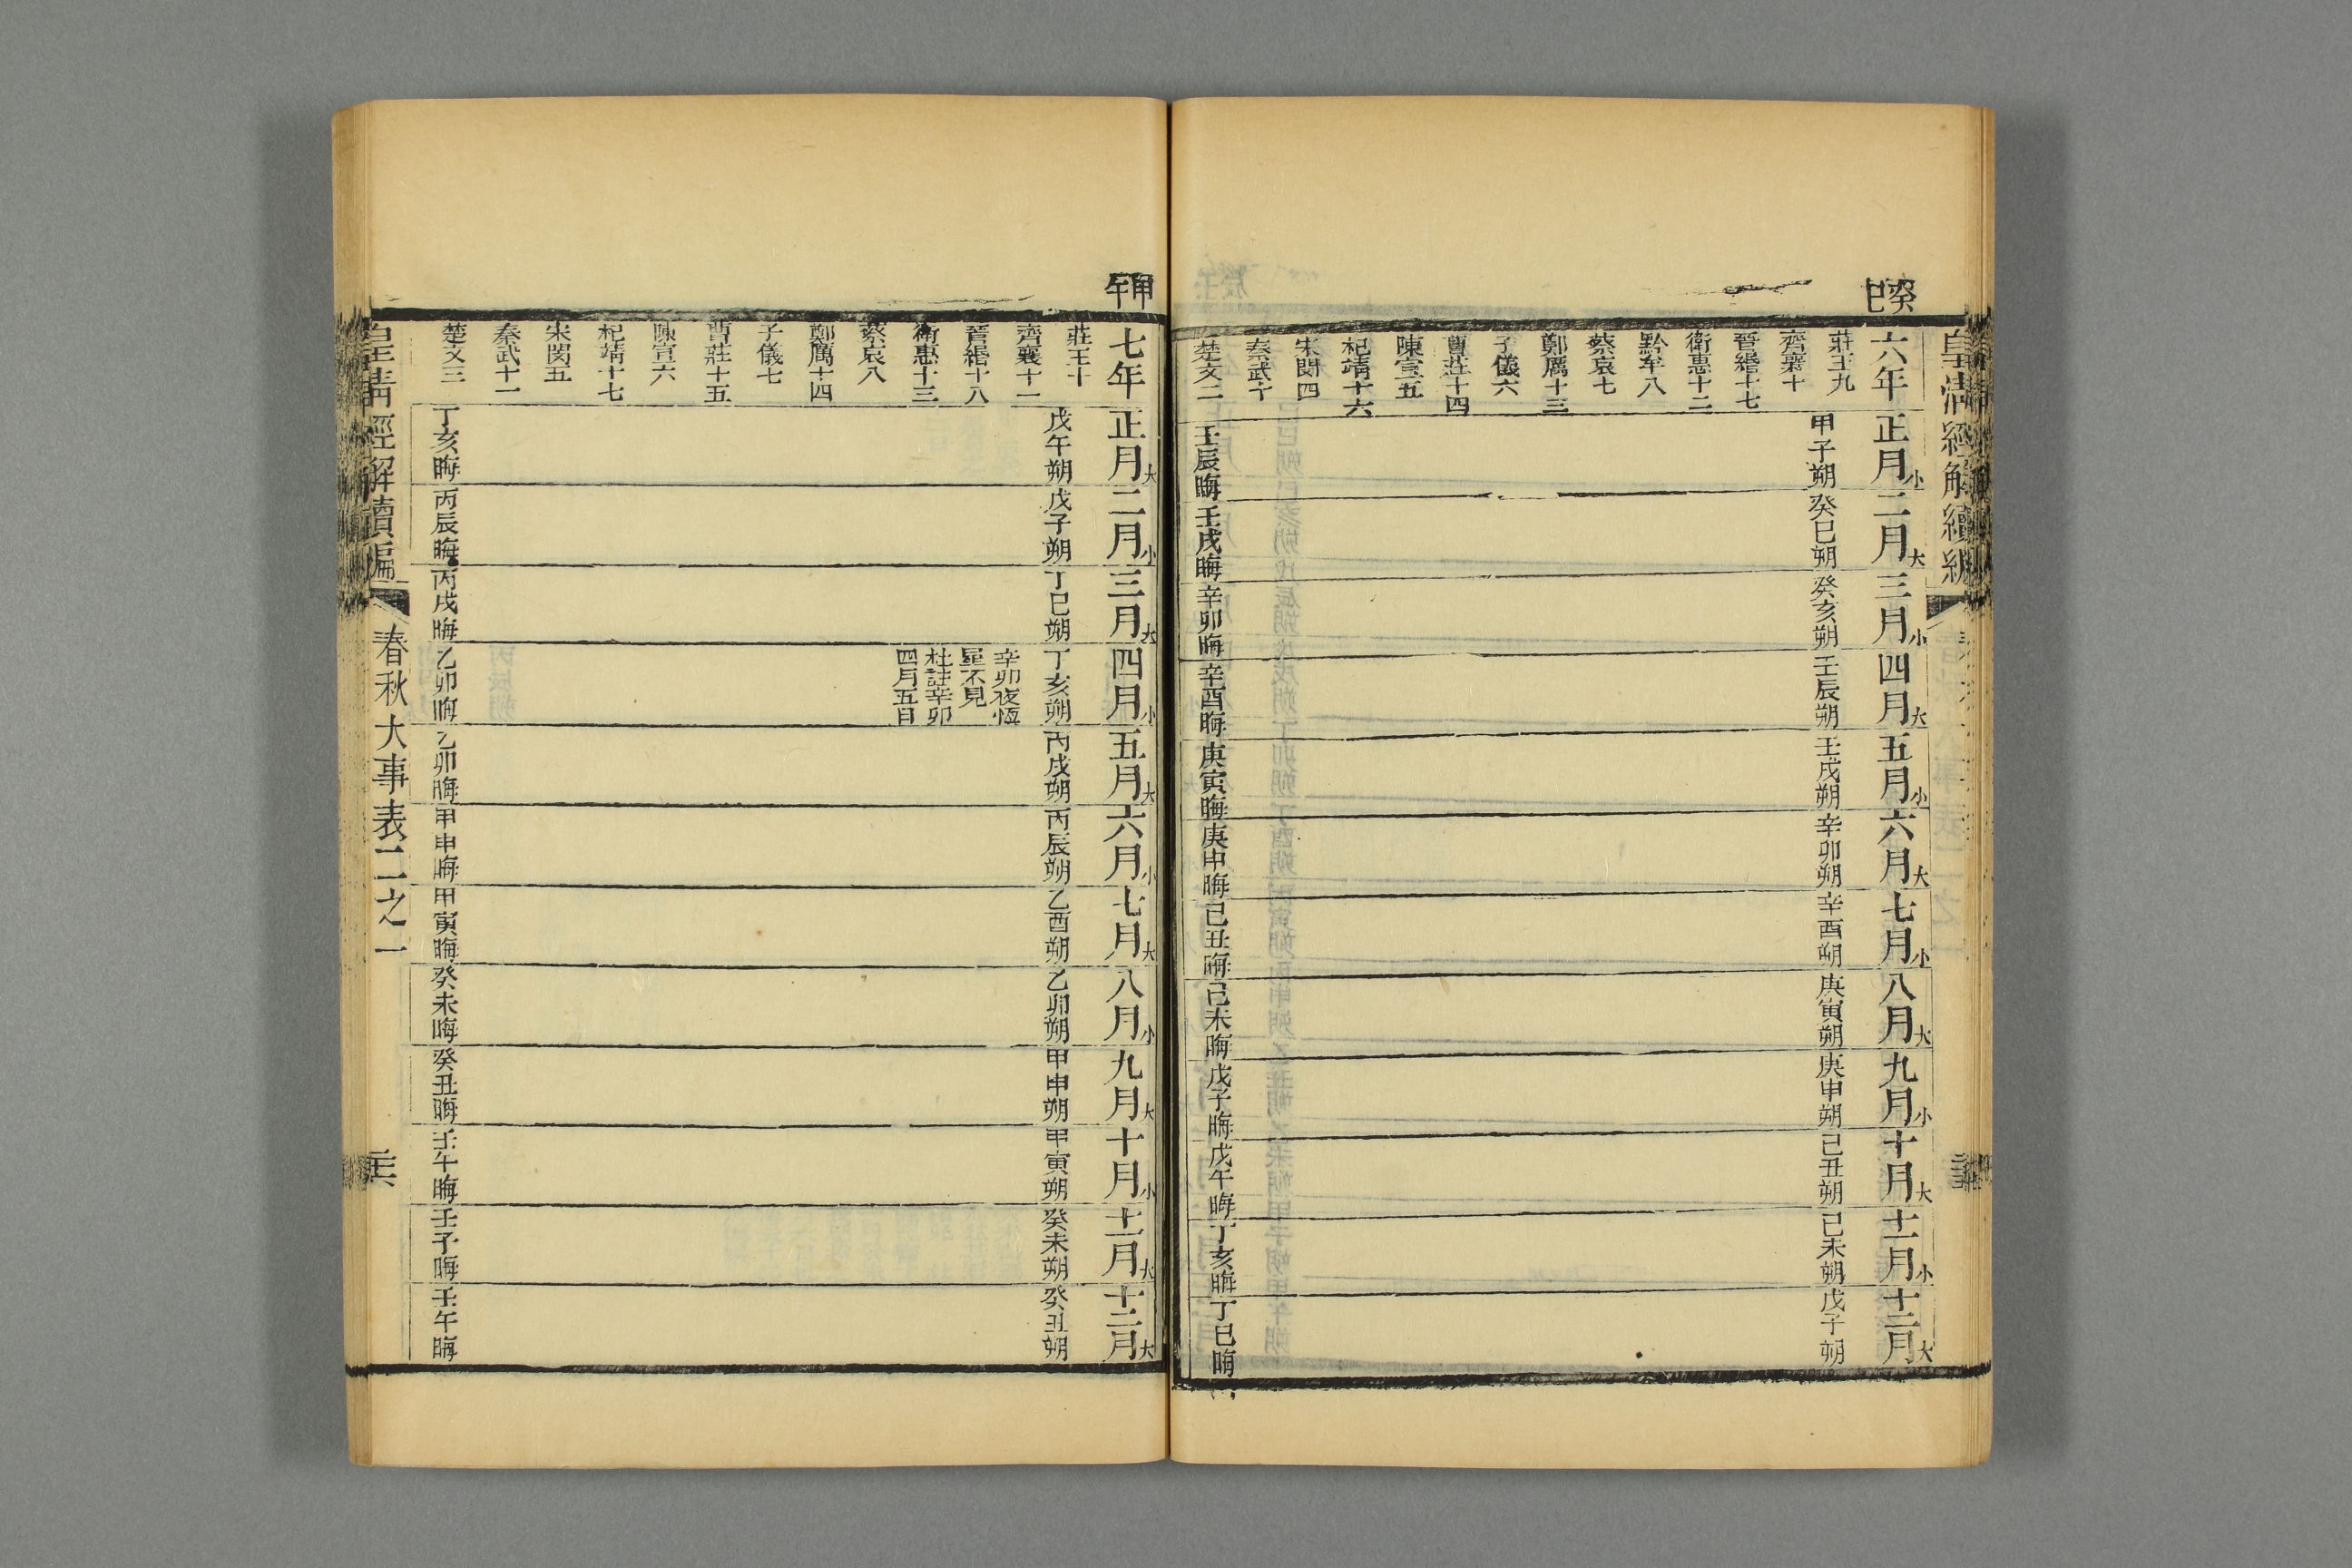 皇清經解續編
癸巳
六年
莊王九
齊襄十
晉緡十七
衛惠十二
黔牟八
蔡哀七
鄭厲十三
子儀六
曹莊十四
陳宣五
杞靖十六
宋閔四
秦武十
楚文二
正月小
甲子朔
壬辰晦
二月大
癸巳朔
壬戌晦
三月小
癸亥朔
辛卯晦
四月大
壬辰朔
辛酉晦
五月小
壬戌朔
庚寅晦
六月大
辛卯朔
庚申晦
七月小
辛酉朔
己丑晦
八月大
庚寅朔
己未晦
九月小
庚申朔
戊子晦
十月大
己丑朔
戊午晦
十一月小
己未朔
丁亥晦
十二月大
戊子朔
丁巳晦
甲午
七年
莊王十
齊襄十一
晉緡十八
衛惠十三
蔡哀八
鄭厲十四
子儀七
曹莊十五
陳宣六
杞靖十七
宋閔五
秦武十一
楚文三
正月大
戊午朔
丁亥晦
二月小
戊子朔
丙辰晦
三月大
丁巳朔
丙戌晦
四月小
丁亥朔
辛卯夜恆
星不見
杜註辛卯
四月五日
乙卯晦
五月大
丙戌朔
乙卯晦
六月小
丙辰朔
甲申晦
七月大
乙酉朔
甲寅晦
八月小
乙卯朔
癸未晦
九月大
甲申朔
癸丑晦
十月小
甲寅朔
壬午晦
十一月大
癸未朔
壬子晦
十二月大
癸丑朔
壬午晦
皇清經解續編
春秋大事表二之一